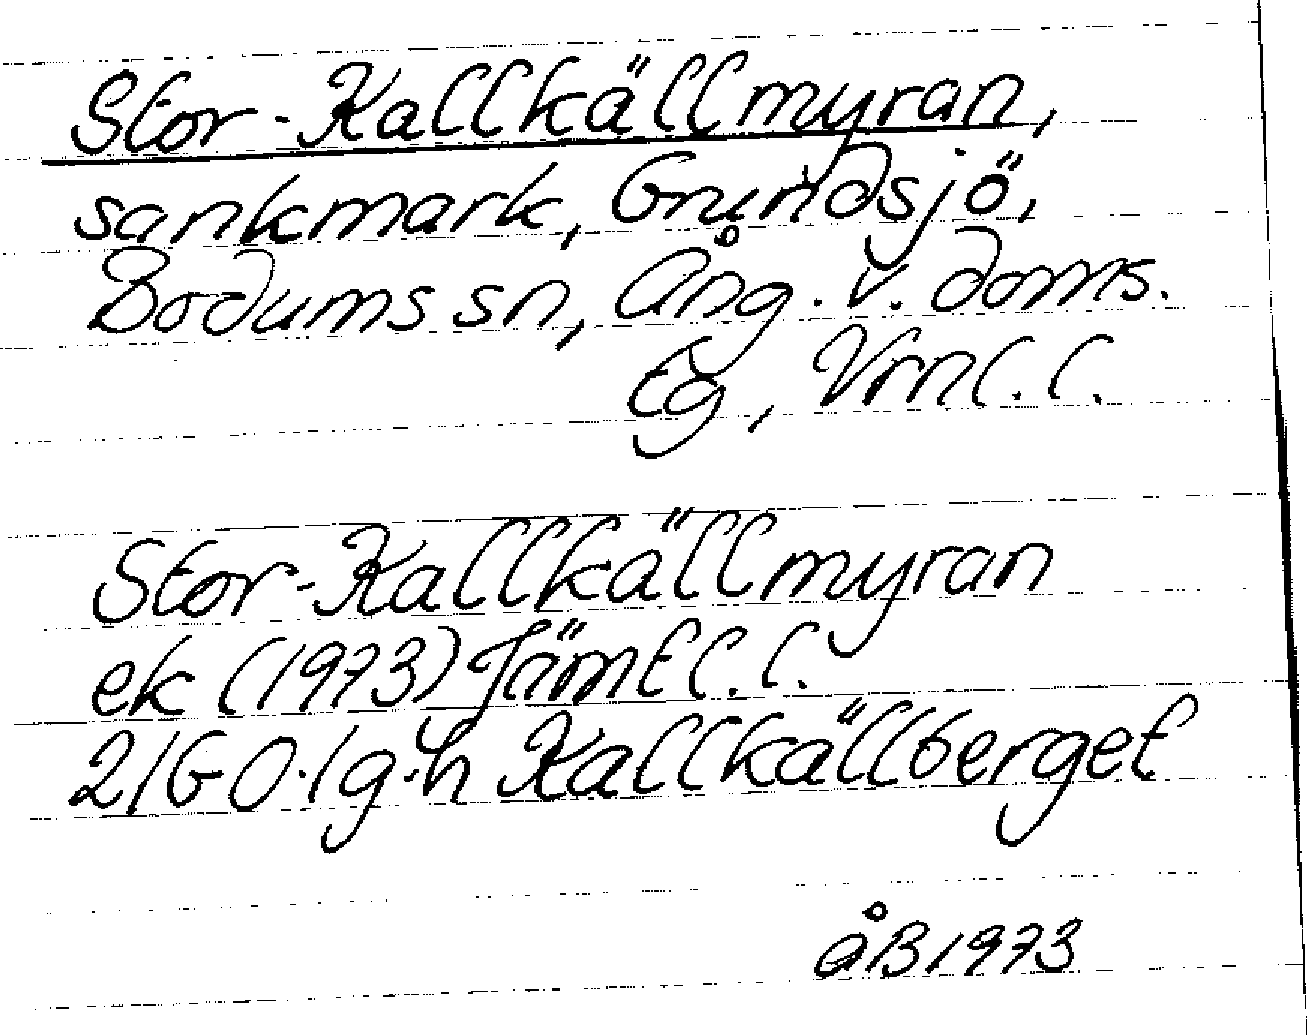 Stor-Kallkällmyran,
sankmark, Grundsjö,
Bodums sn, Ång. v. doms.
Eg, Vrnl. l.
Stor-Kallkällmyran
ek (1973) Jämtl. l.
21G0.1g.h Kallkällberget
åB 1973